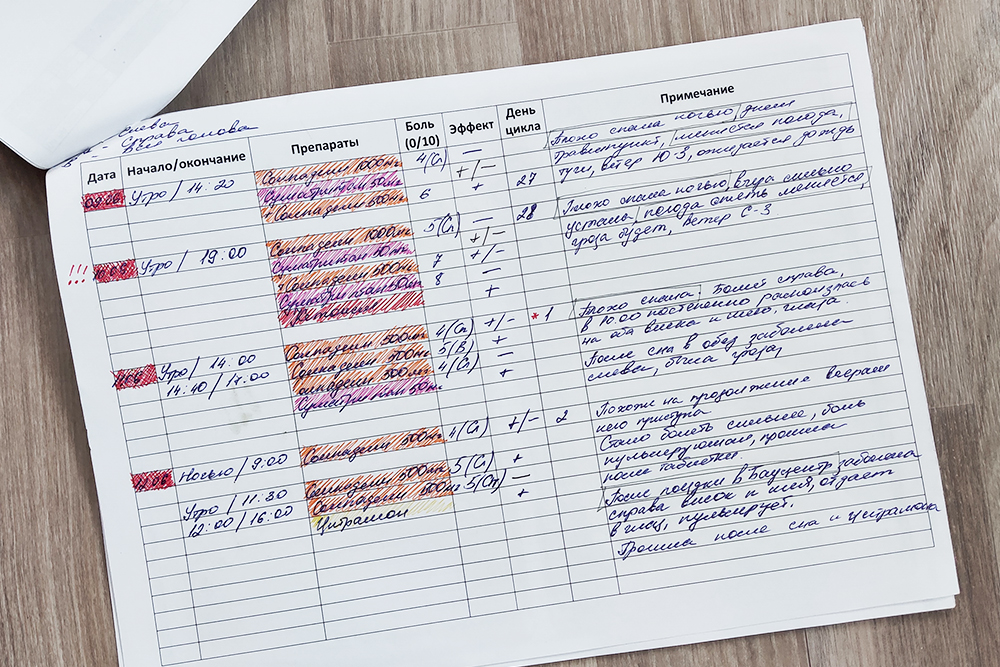 слева
справа
вся голова
Дата Начало/окончание Препараты Боль (0/10) Эффект День цикла Примечание
09.06 Утро / 14:20 Солпадеин 1000мг 4(Сл) — 27 Плохо спала ночью, днем
Суматриптан 50мг +/- травмпункт, меняется погода,
Солпадеин 500мг 6 + тучи, ветер Ю-З, ожидается дождь
!!! 10.06 Утро / 19:00 Солпадеин 1000мг 5(Сл) — 28 Плохо спала ночью, вчера сильно
Суматриптан 50мг +/- устала, погода опять меняется,
Солпадеин 500мг 7 +/- гроза будет, ветер С-З
Суматриптан 50мг 8 —
+
11.06 Утро / 14:00 Солпадеин 500мг 4(Сп) +/- * 1 Плохо спала. Болит справа,
14:40 / 17:00 Солпадеин 500мг 5(В) + в 10:00 постепенно
Солпадеин 500мг 4(Сл) — на оба виска и шею,
Суматриптан 50мг + После сна в обед заболела
слева, была гроза,
Ночью / 9:00 Солпадеин 500мг 4(Сл) +/- 2 Похоже на продолжение вчераш
него приступа
Стало болеть сильнее, боль
пульсирующая, прошла
после таблетки.
Утро / 11:30 Солпадеин 500мг 5(Сл) + После поездки в Бауцентр заболела
12:00 / 16:00 Солпадеин 500мг 5(Сп) — справа висок и шея, отдает
Цитрамон + в глаз, пульсирует.
Прошла после сна и Цитрамона